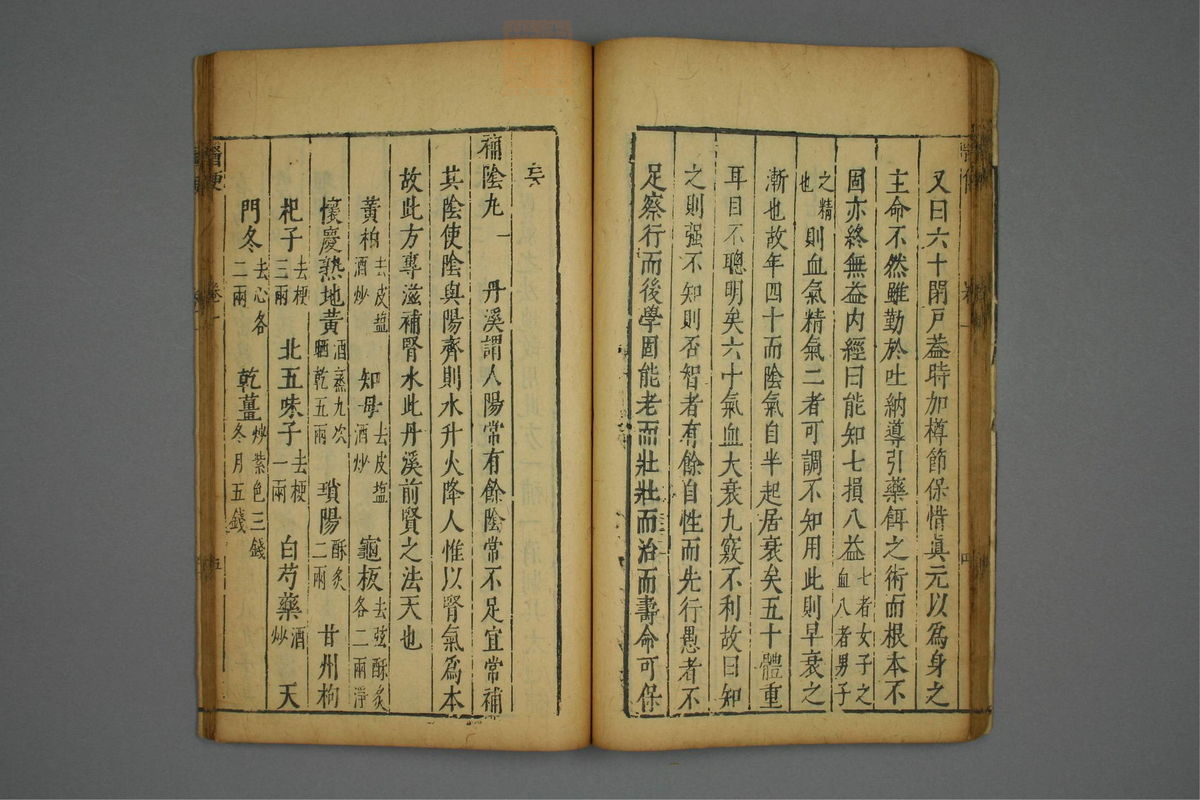 又曰六十閉戸葢時加樽節保惜眞元以爲身之
主命不然雖勤於吐納導引藥餌之術而根本不
固亦終無益内經曰能知七損八益七者女子之血八者男子
之精也則血氣精氣二者可調不知用此則早衰之
漸也故年四十而陰氣自半起居衰矣五十體重
耳目不聰明矣六十氣血大衰九竅不利故曰知
之則强不知則否智者有餘自性而先行愚者不
足察行而後學固能老而壯壯而治而壽命可保
矣
補陰九一　丹溪謂人陽常有餘陰常不足宜常補
其陰使陰與陽齊則水升火降人惟以腎氣爲本
故此方專滋補腎水此丹溪前賢之法天也
黃柏去皮盐酒炒　知母去皮盐酒炒　龜板去弦酥炙各二兩淨
懷慶熟地黃酒蒸九次晒乾五兩　瑣陽酥炙二兩　甘州枸
杞子去梗三兩　北五味子去梗一兩　白芍藥酒炒　天
門冬去心各二兩　乾薑炒紫色三錢冬月五錢
卷一
五